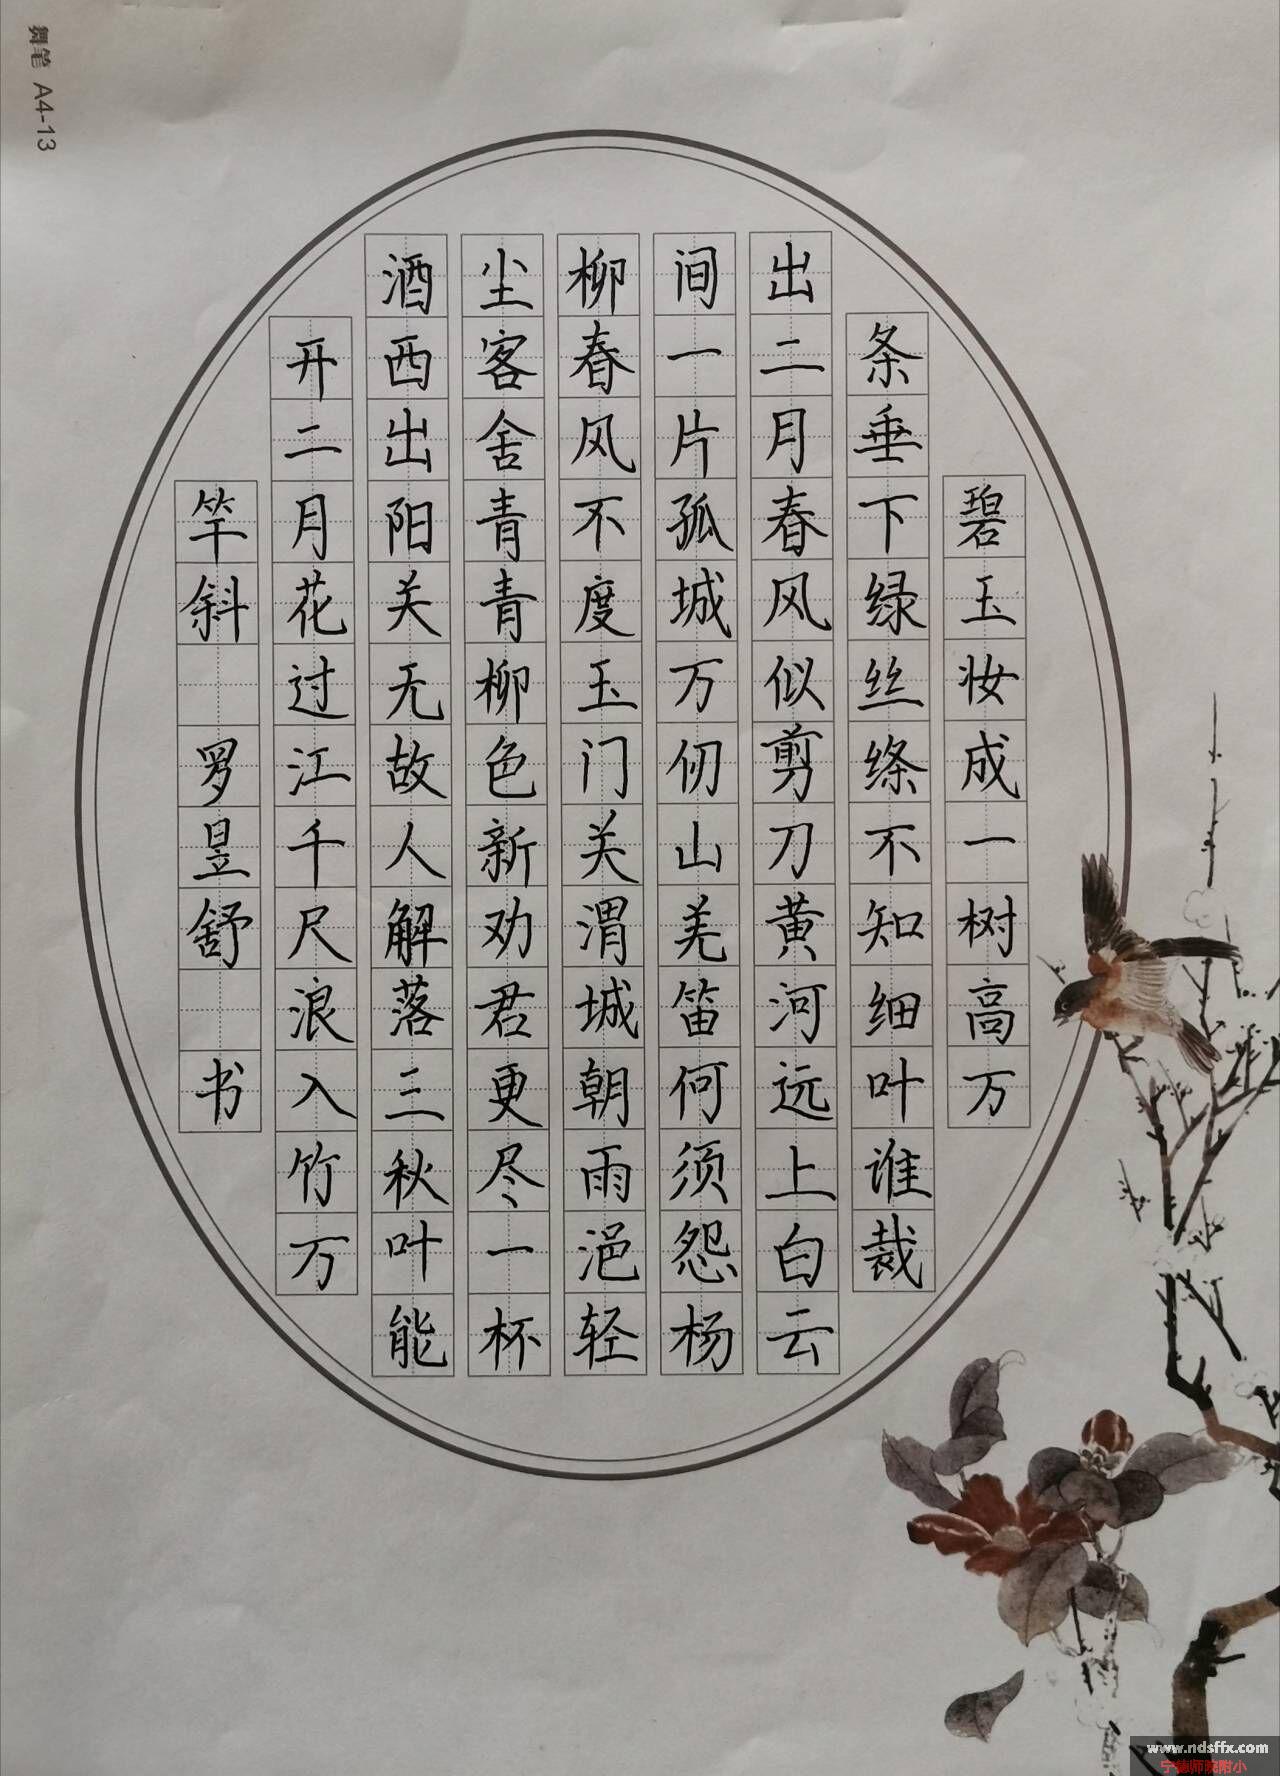 舞笔 A4-13
碧玉妆成一树高万
条垂下绿丝绦不知细叶谁裁
出二月春风似剪刀黄河远上白云
间一片孤城万仞山羌笛何须怨杨
柳春风不度玉门关渭城朝雨浥轻
尘客舍青青柳色新劝君更尽一杯
酒西出阳关无故人解落三秋叶能
开二月花过江千尺浪入竹万
竿斜 罗昱舒 书
www.ndsffx.com
宁德师院附小